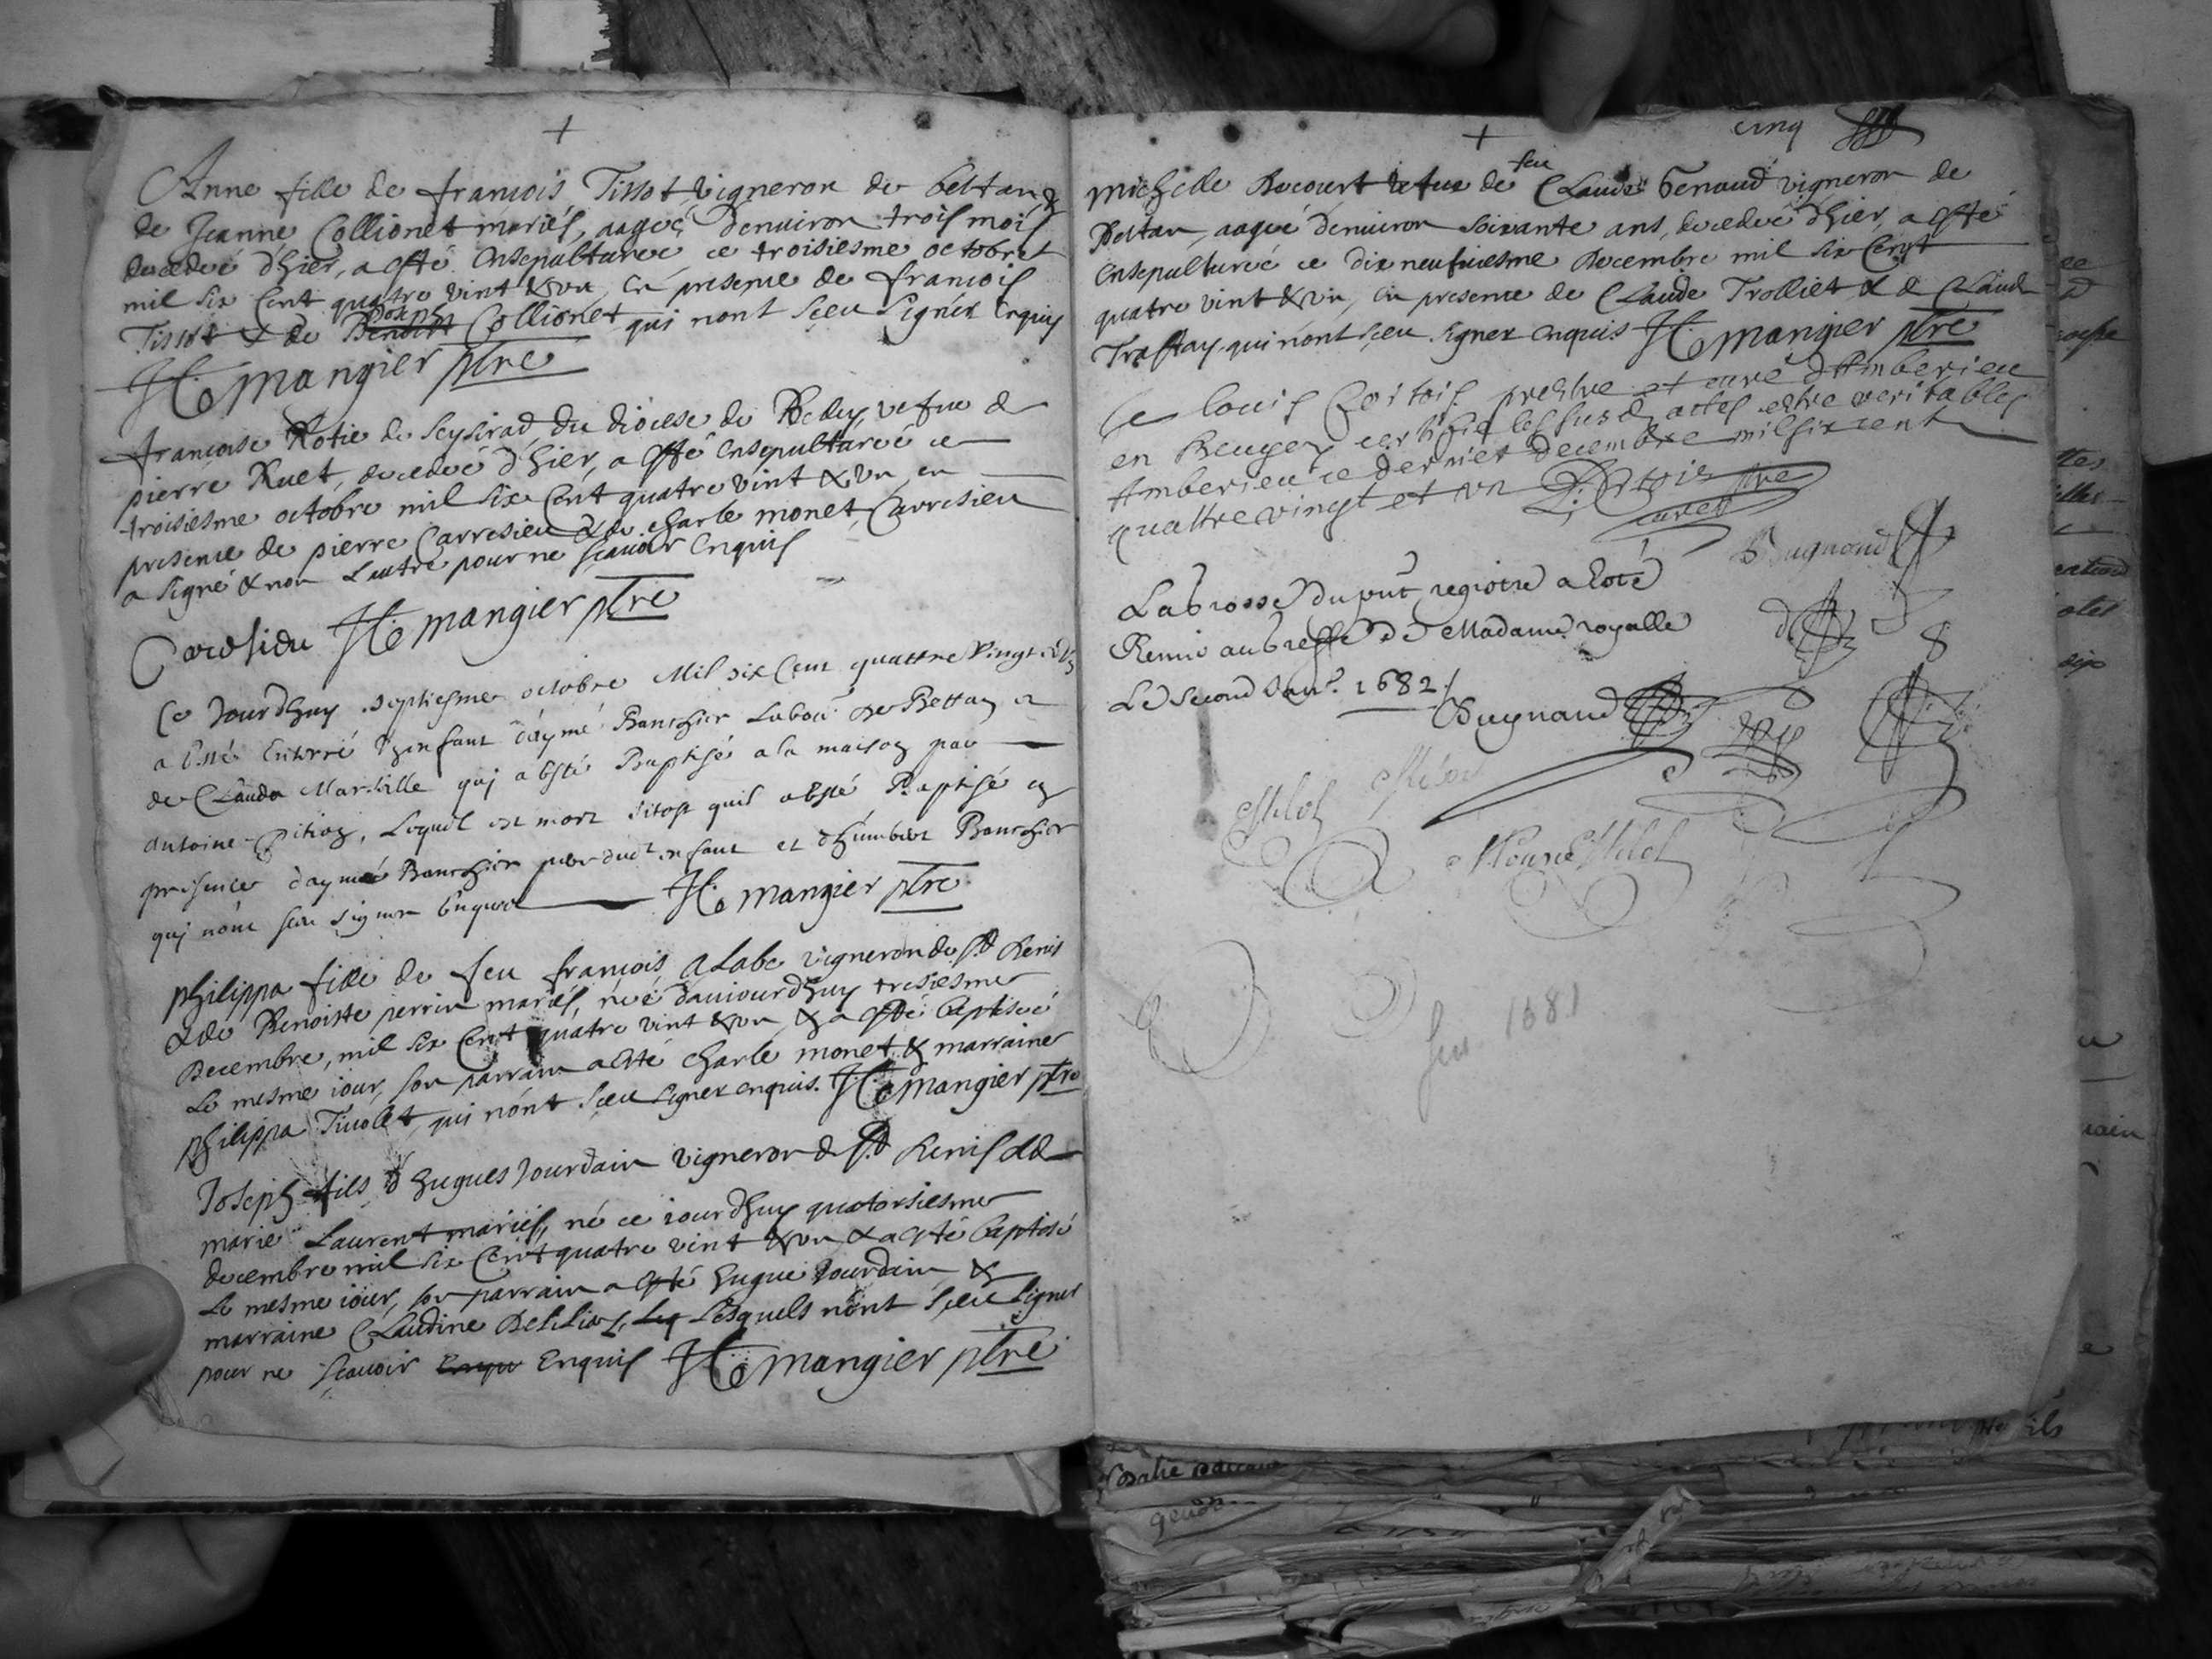 +
Anne fille de francois Tissot vigneron de bettan &
de Jeanne Collionet mariés, aageé denuiron trois mois
decedeé dhier, a esté ensepultureé ce troisiesme octobre
mil six Cent quatre vint & vn, en presence de francois
Tissot & de Joseph Collionet qui nont sceu signer enquis
H. mangier ptre
francoise Rotie de Seysirad, du diocese de Belley, vefue de
pierre Ruet, decedeé dhier, a esté ensepultureé ce
troisiesme octobre mil six Cent quatre vint & vn en
presence de pierre Carresieu & de charle monet, Carresieu
a signé & non Lautre pour ne scauoir enquis
Caresieu H. mangier ptre
Ce Jourdhuy septiesme octobre Mil six Cent quattre Vingt & vn
a esté enterré Lenfant daymé Banchier Labou. de Bettan et
de Claude Martille quj a esté Baptisé a la maison par
Antoine Pition, Lequel est mort sitost quil a esté Baptisé en
presence daymé Banchier pere dudt enfant et dhumbert Banchier
quj nont sceu signer Enquis H. mangier ptre
philippa fille de feu francois Alabe vigneron de St Denis
& de Benoiste perrin mariés, neé daujourdhuy tresiesme
Decembre, mil six Cent quatre vint & vn, & a esté baptiseé
Le mesme iour, son parrain a esté charle monet & marraine
philippa Tiuollet, qui nont sceu signer enquis. H. mangier ptre
Joseph fils d hugues Jourdain vigneron de St Denis & de
marie Laurent mariés, né ce iourdhuy quatorsiesme
decembre mil six Cent quatre vint & vn & a esté baptisé
Le mesme iour, son parrain a esté hugue Jourdain &
marraine Claudine Lesquels nont sceu signer
pour ne scauoir Enquis H. mangier ptre
+ cinq
michelle Decourt vefue de feu Claude benaud vigneron de
Bettan, aageé denuiron soixante ans, decedeé dhier, a esté
ensepultureé ce dix neufuiesme Decembre mil six Cent
quatre vint & vn, en presence de Claude Trolliet & de Claude
Traffay qui nont sceu signer enquis H. mangier ptre
Je louis Cortois prestre et curé dAmberieu
en Beugey certifie les susd. actes estre veritables
Amberieu ce dernier decembre mil six cent
quattre vingt et vn L. Cortois ptre
curé
Dugnand
La brosse du put registre a esté
Remis au greffe de Madame royalle
Le Second Janv. 1682
Dugnand
8
Milot
1681